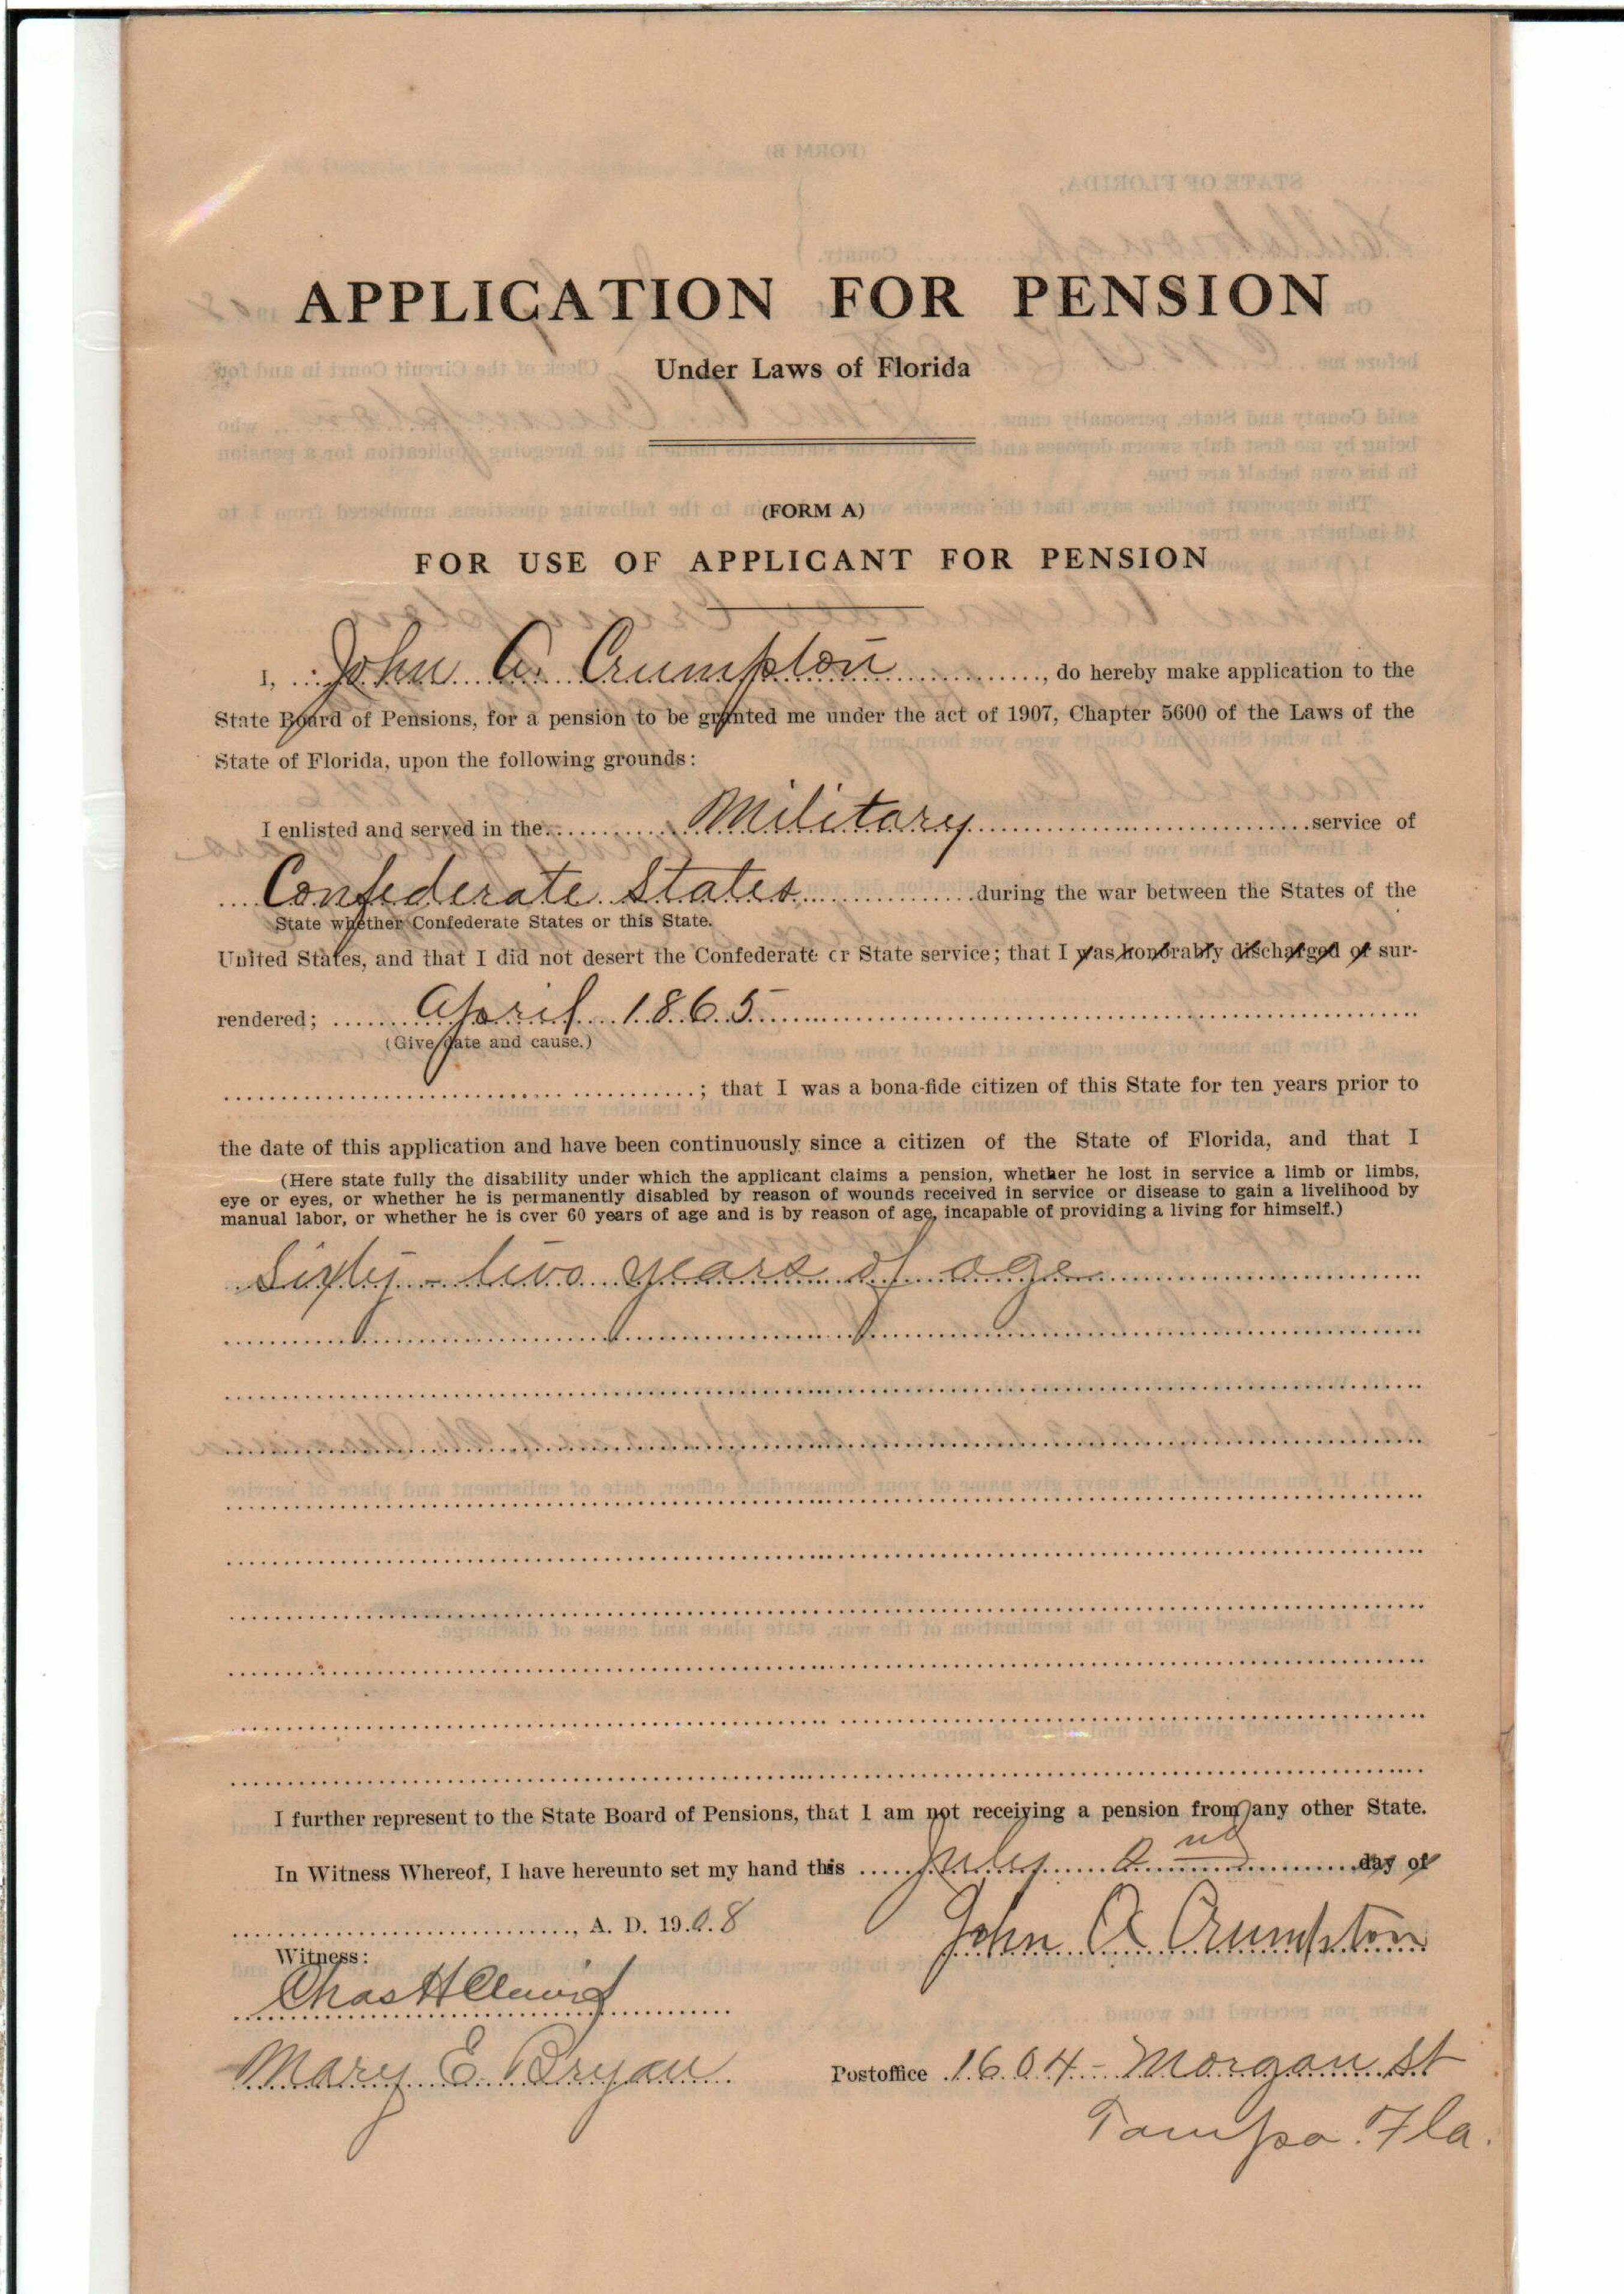 APPLICATION FOR PENSION
Under Laws of Florida
(FORM A)
FOR USE OF APPLICANT FOR PENSION
I, John A. Crumpton, do hereby make application to the
State Board of Pensions, for a pension to be granted me under the act of 1907, Chapter 5600 of the Laws of the
State of Florida, upon the following grounds:
I enlisted and served in the Military service of
Confederate States during the war between the States of the
State whether Confederate States or this State.
United States, and that I did not desert the Confederate or State service; that I was honorably discharged or sur-
rendered; April 1865
(Give date and cause.)
; that I was a bona-fide citizen of this State for ten years prior to
the date of this application and have been continuously since a citizen of the State of Florida, and that I
(Here state fully the disability under which the applicant claims a pension, whether he lost in service a limb or limbs,
eye or eyes, or whether he is permanently disabled by reason of wounds received in service or disease to gain a livelihood by
manual labor, or whether he is over 60 years of age and is by reason of age, incapable of providing a living for himself.)
Sixty-two years of age
I further represent to the State Board of Pensions, that I am not receiving a pension from any other State.
In Witness Whereof, I have hereunto set my hand this July 2nd day of
, A. D. 1908
John A Crumpton
Witness:
Chas H
Mary E. Bryan
Postoffice 1604 - Morgan St
Tampa. Fla.